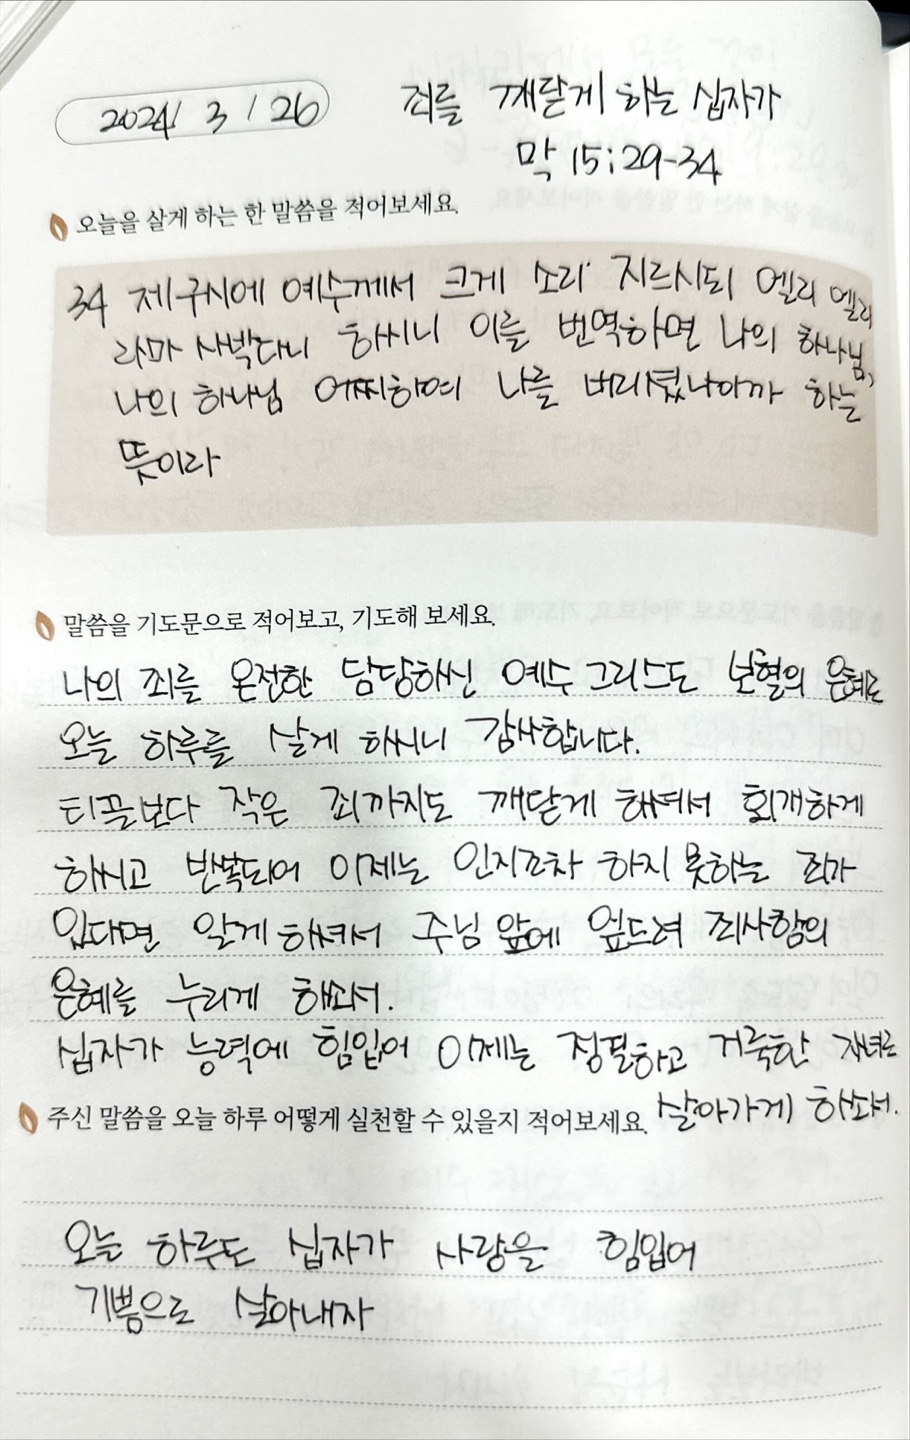 2024 / 3 / 26
죄를 깨닫게 하는 십자가
막 15:29-34
오늘을 살게 하는 한 말씀을 적어보세요.
34 제구시에 예수께서 크게 소리 지르시되 엘리 엘리
라마 사박다니 하시니 이를 번역하면 나의 하나님,
나의 하나님 어찌하여 나를 버리셨나이까 하는
뜻이라
말씀을 기도문으로 적어보고, 기도해 보세요.
나의 죄를 온전한 담당하신 예수 그리스도 보혈의 은혜로
오늘 하루를 살게 하시니 감사합니다.
티끌보다 작은 죄까지도 깨닫게 하셔서 회개하게
하시고 반복되어 이제는 인지조차 하지 못하는 죄가
있다면 알게 하셔서 주님 앞에 엎드려 죄사함의
은혜를 누리게 하소서.
십자가 능력에 힘입어 이제는 정결하고 거룩한 자녀로
살아가게 하소서.
주신 말씀을 오늘 하루 어떻게 실천할 수 있을지 적어보세요.
오늘 하루도 십자가 사랑을 힘입어
기쁨으로 살아내자